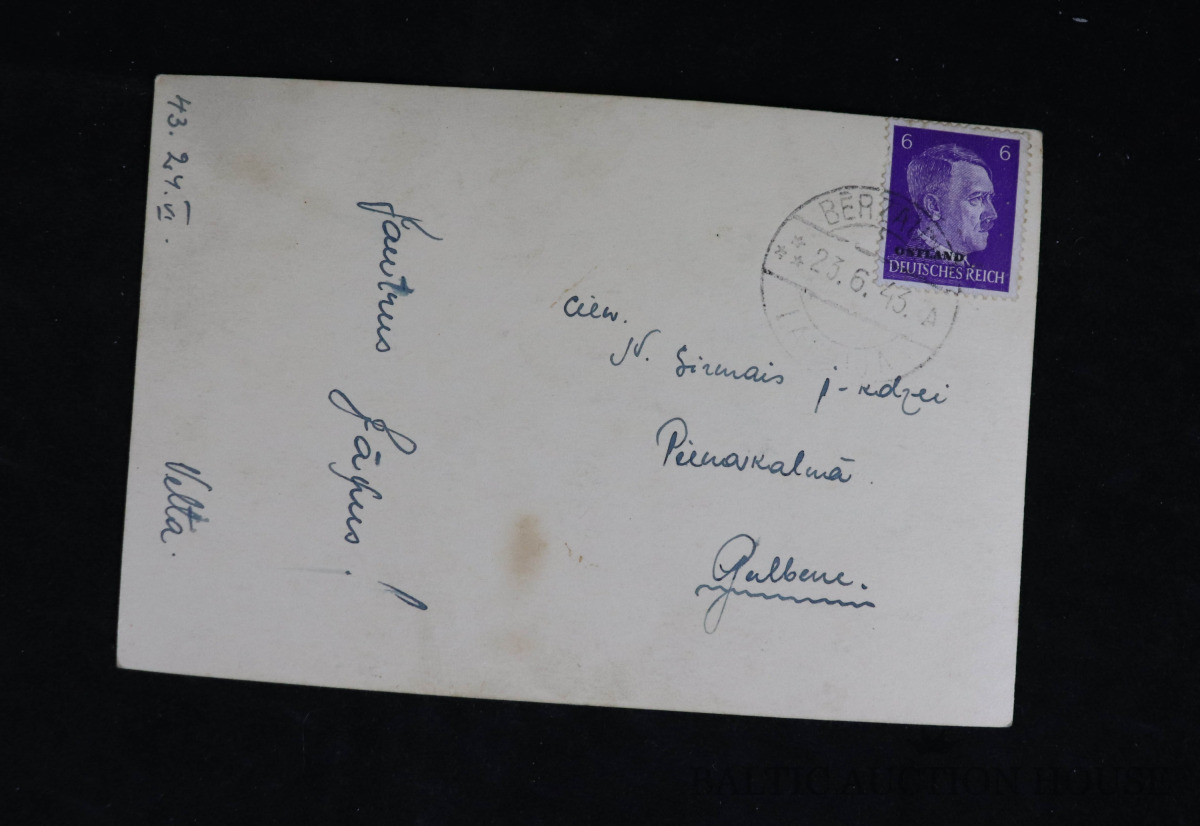 43. 24. VI.
Jautrus
Jāņus!
Velta.
6 6
OSTLAND
DEUTSCHES REICH
23.6.43. A
ciew.
N. Sirmais j-kdzei
Pienakalnā.
Gulbene.
BALTIC AUCTION HOUSE